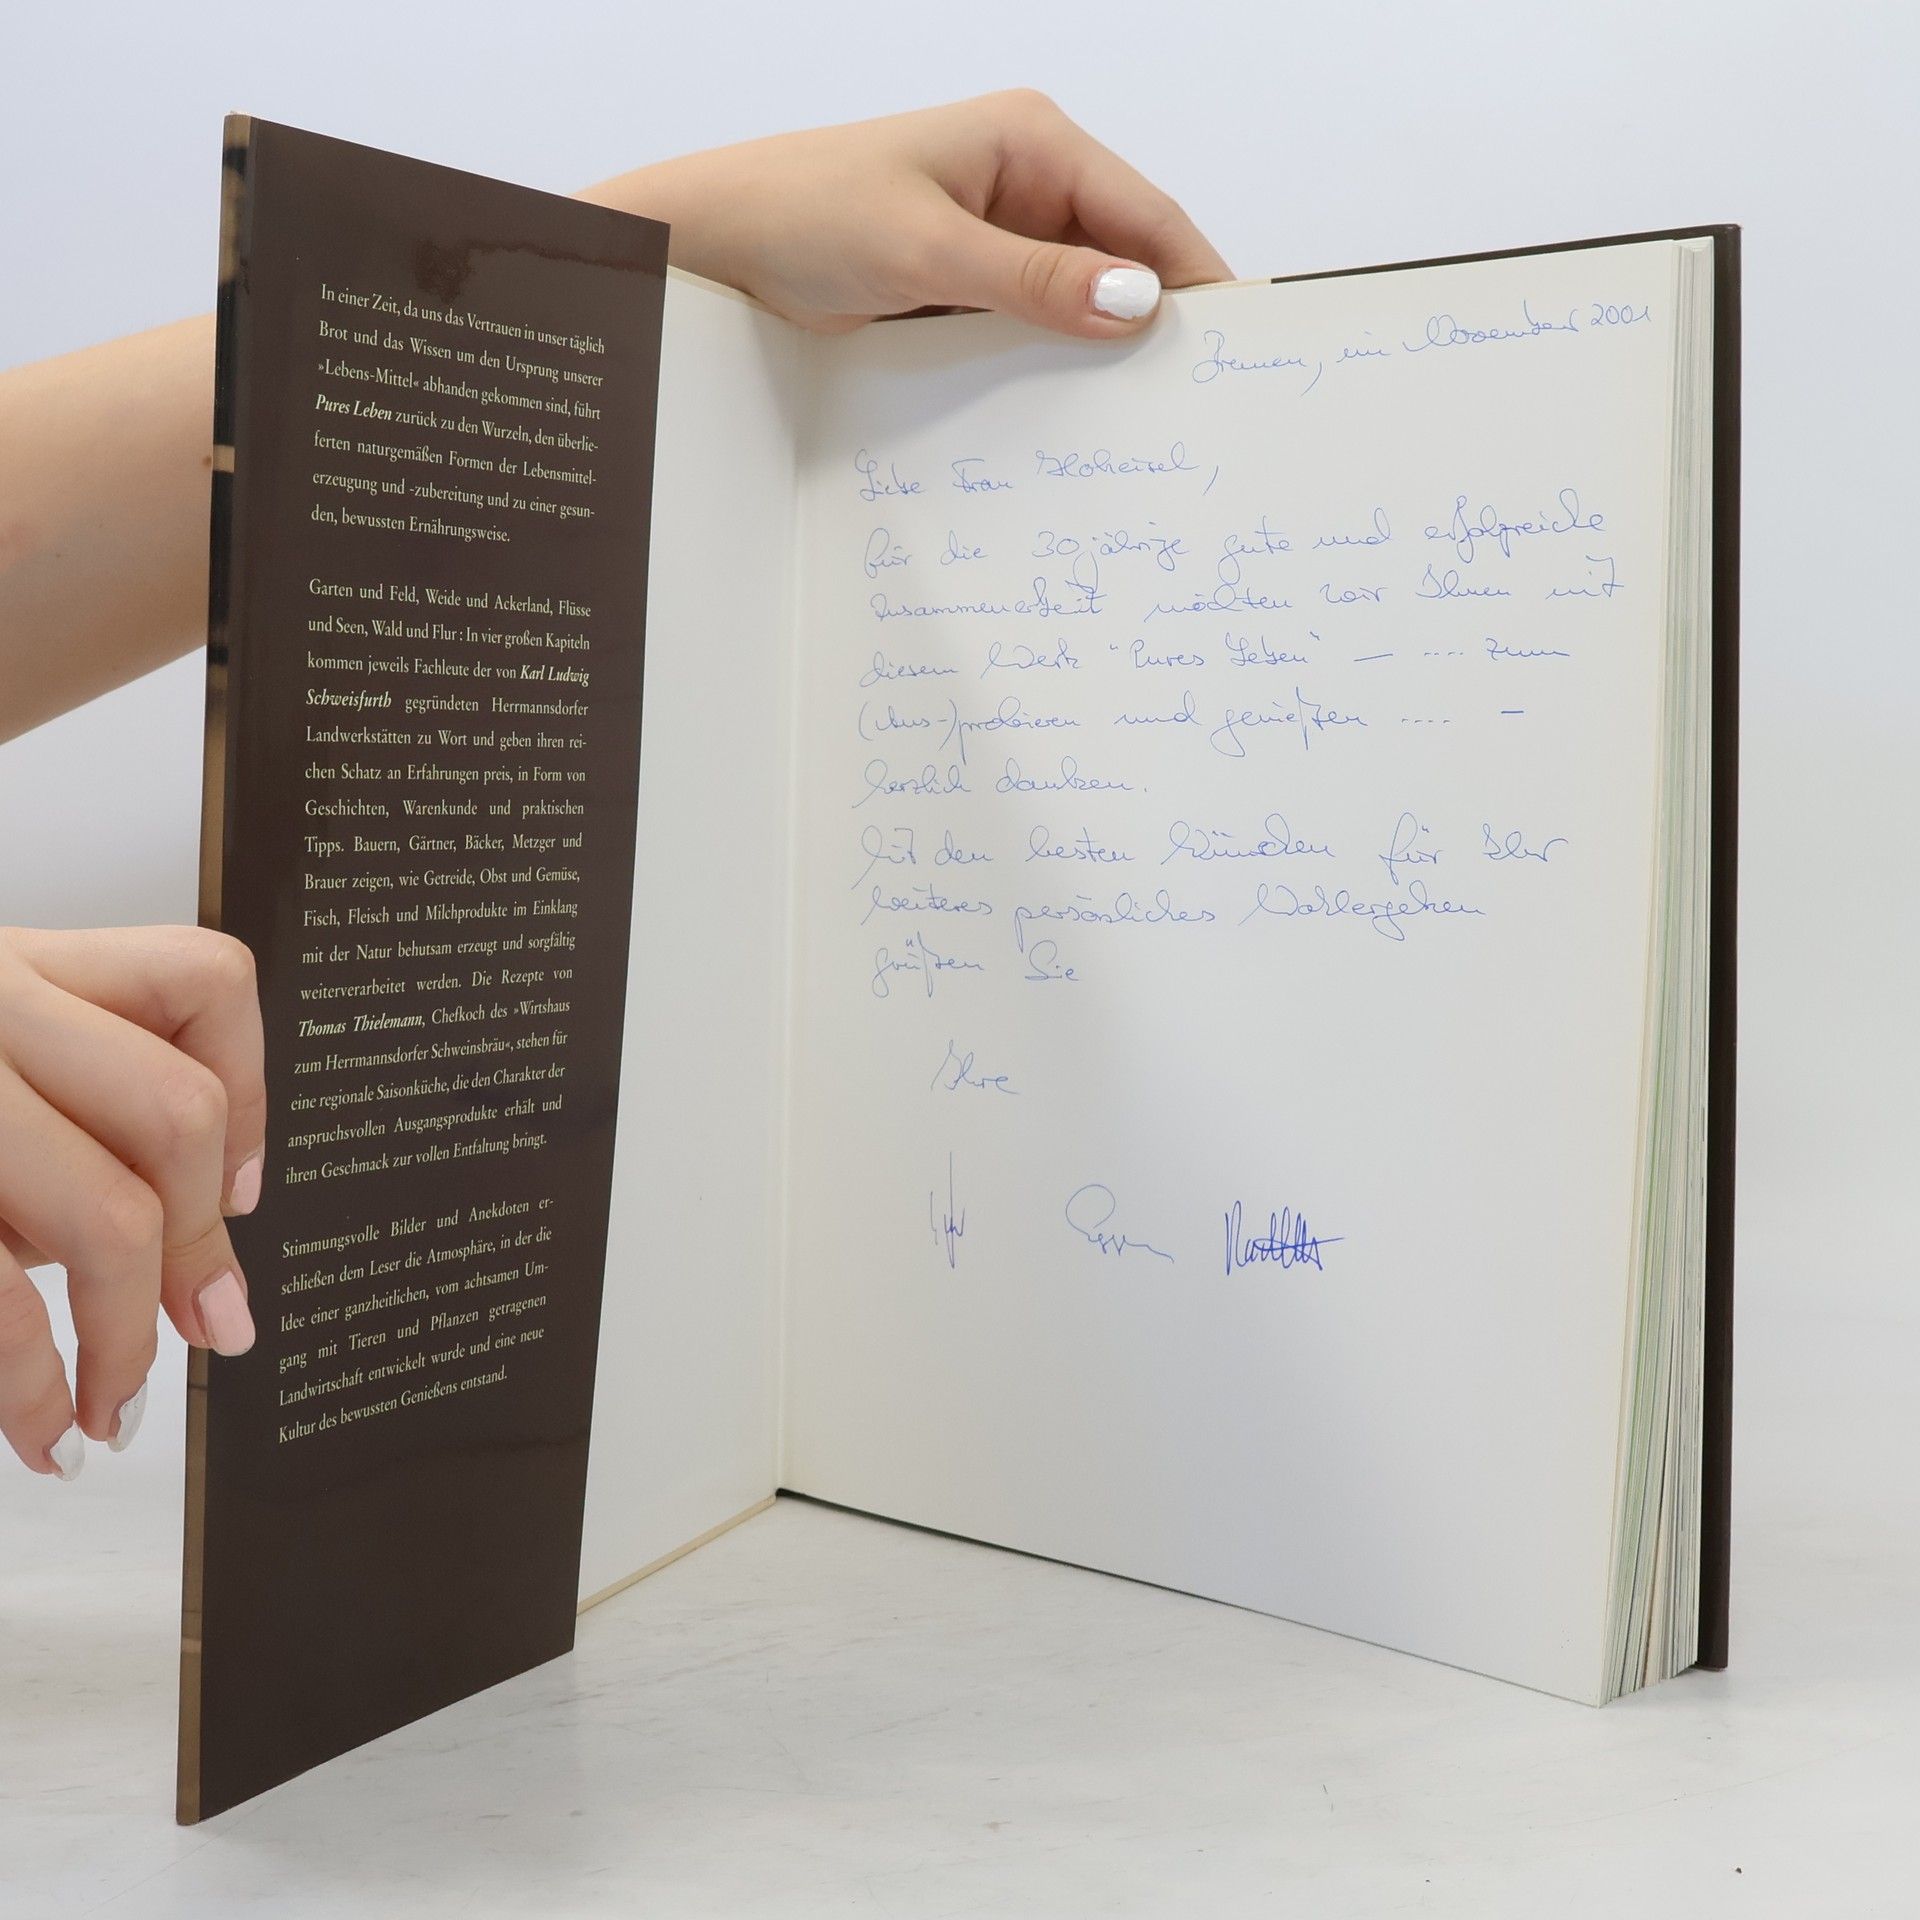 In einer Zeit, da uns das Vertrauen in unser täglich
Brot und das Wissen um den Ursprung unserer
»Lebens-Mittel« abhanden gekommen sind, führt
Pures Leben zurück zu den Wurzeln, den überlie-
ferten naturgemäßen Formen der Lebensmittel-
erzeugung und -zubereitung und zu einer gesun-
den, bewussten Ernährungsweise.
Garten und Feld, Weide und Ackerland, Flüsse
und Seen, Wald und Flur : In vier großen Kapiteln
kommen jeweils Fachleute der von Karl Ludwig
Schweisfurth gegründeten Herrmannsdorfer
Landwerkstätten zu Wort und geben ihren rei-
chen Schatz an Erfahrungen preis, in Form von
Geschichten, Warenkunde und praktischen
Tipps. Bauern, Gärtner, Bäcker, Metzger und
Brauer zeigen, wie Getreide, Obst und Gemüse,
Fisch, Fleisch und Milchprodukte im Einklang
mit der Natur behutsam erzeugt und sorgfältig
weiterverarbeitet werden. Die Rezepte von
Thomas Thielemann, Chefkoch des »Wirtshaus
zum Herrmannsdorfer Schweinsbräu«, stehen für
eine regionale Saisonküche, die den Charakter der
anspruchsvollen Ausgangsprodukte erhält und
ihren Geschmack zur vollen Entfaltung bringt.
Stimmungsvolle Bilder und Anekdoten er-
schließen dem Leser die Atmosphäre, in der die
Idee einer ganzheitlichen, vom achtsamen Um-
gang mit Tieren und Pflanzen getragenen
Landwirtschaft entwickelt wurde und eine neue
Kultur des bewussten Genießens entstand.
Bremen, im November 2001
Liebe Frau Hoheisel,
für die 30 jährige gute und erfolgreiche
Zusammenarbeit möchten wir Ihnen mit
diesem Werk "Pures Leben" — .... zum
(Aus-)probieren und genießen .... –
herzlich danken.
Mit den besten Wünschen für Ihr
weiteres persönliches Wohlergehen
grüßen Sie
Ihre